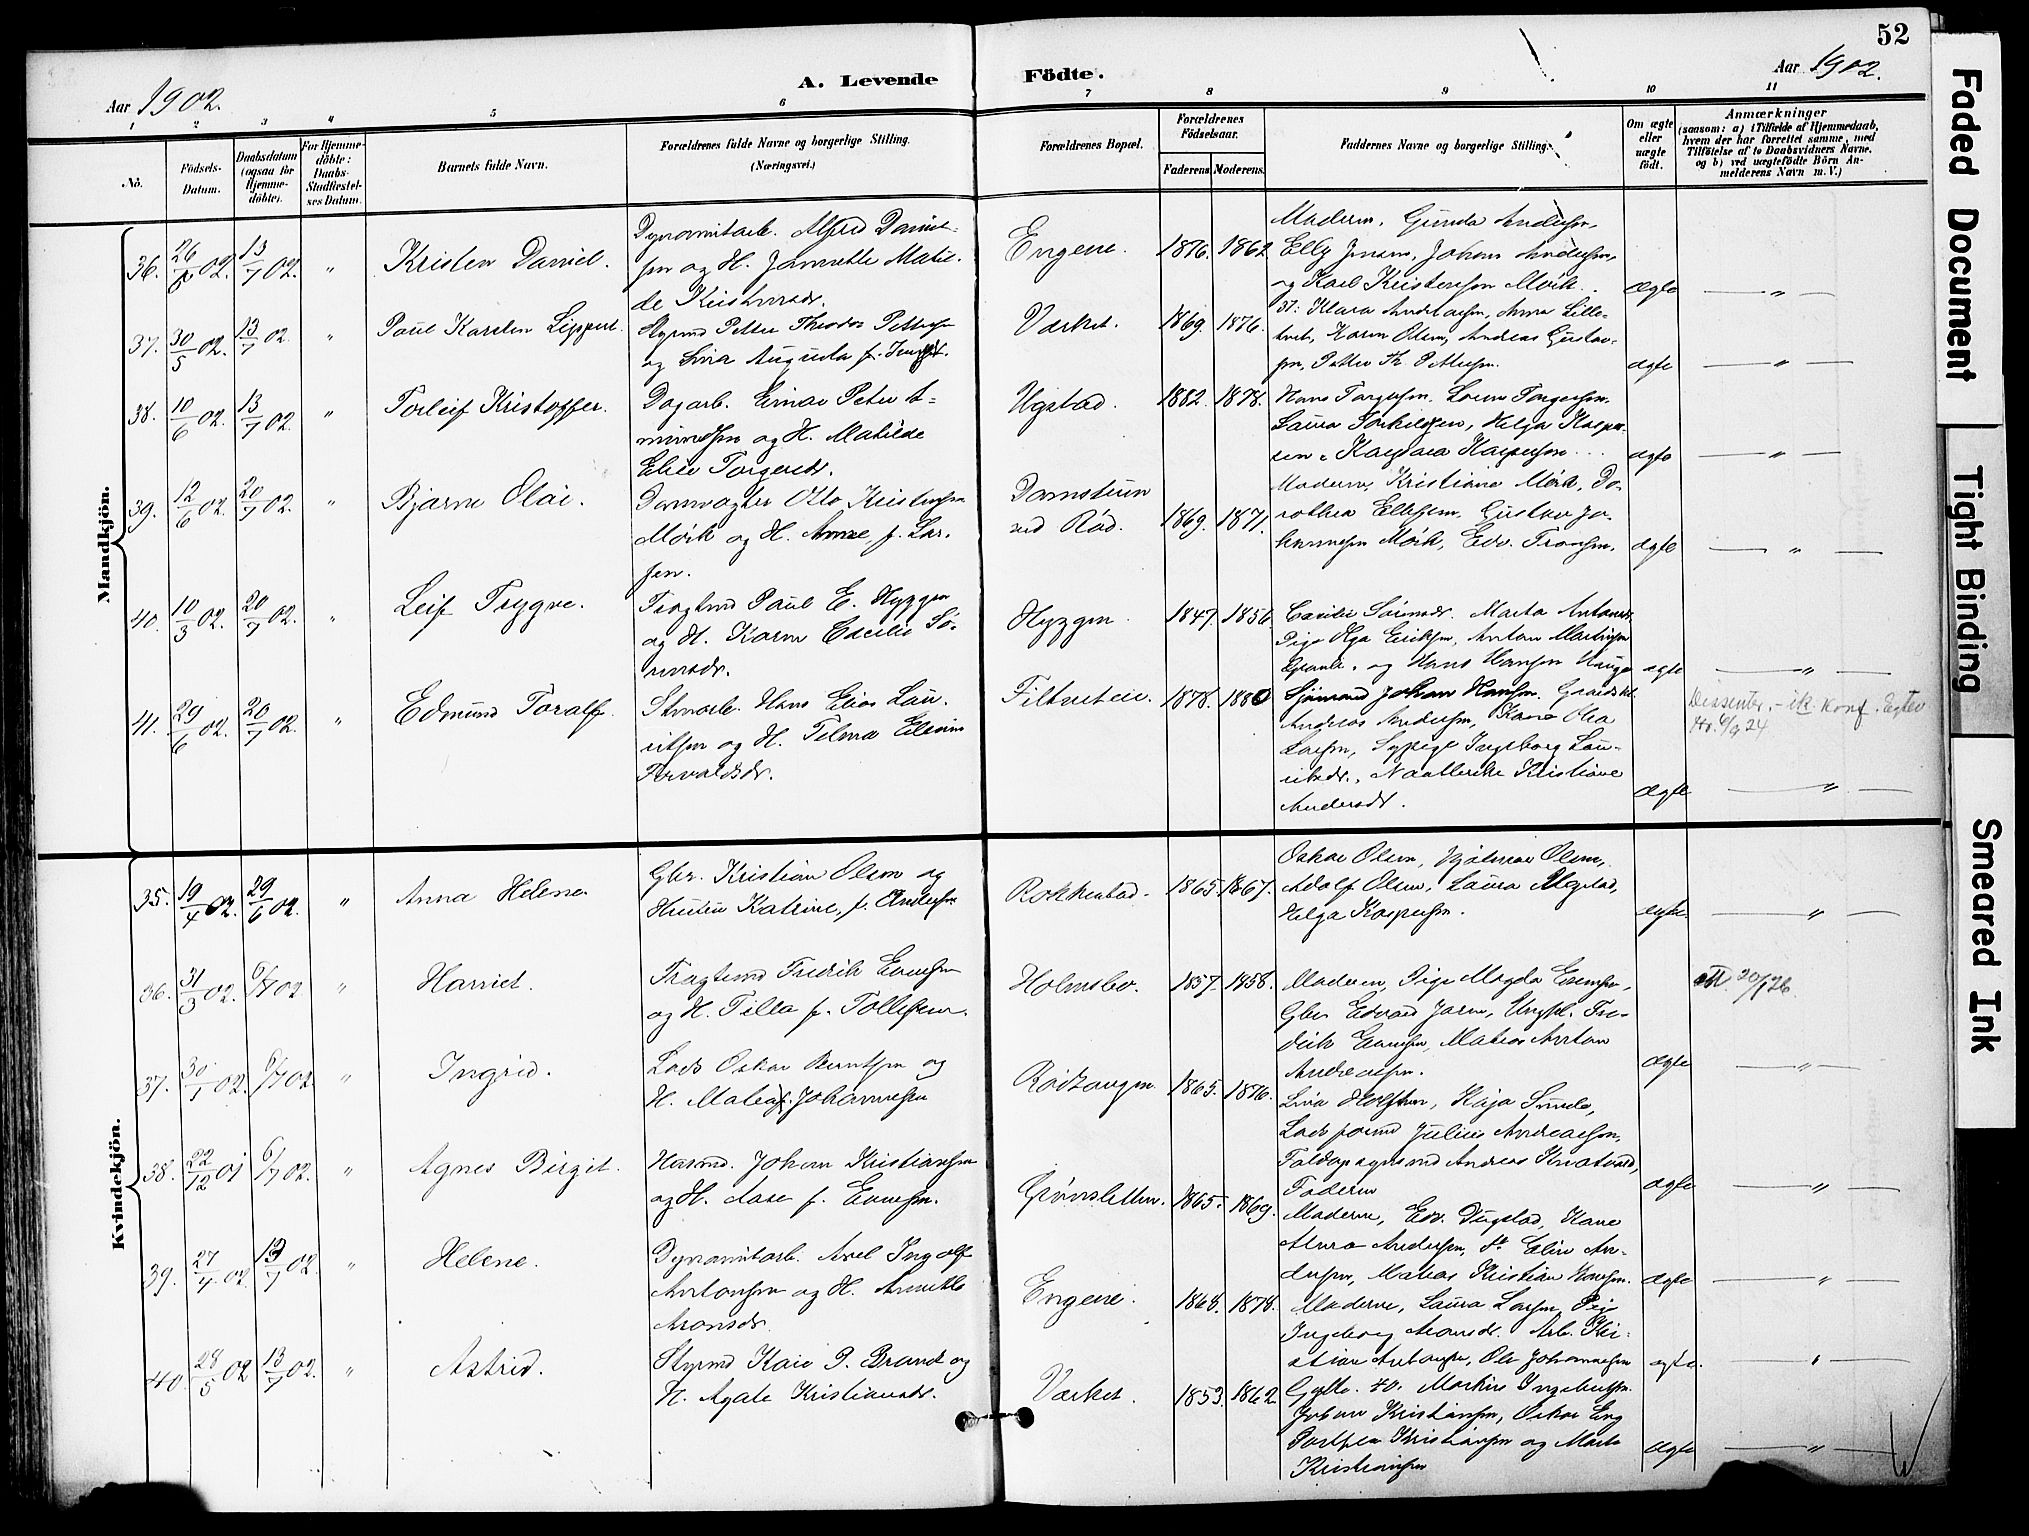 52
Aar 1902.
A. Levende Födte.
Aar 1902.
1 2 3 4 5 6 7 8 9 10 11
No.
Födsels-
Datum.
Daabsdatum
(ogsaa for
Hjemme-
döbte).
For Hjemme-
döbte:
Daabs-
Stadfæstel-
ses Datum.
Barnets fulde Navn.
Forældrenes fulde Navne og borgerlige Stilling.
(Næringsvei.)
Forældrenes Bopæl.
Forældrenes
Födselsaar.
Faderens Moderens.
Faddernes Navne og borgerlige Stilling.
Om ægte
eller
uægte
födt.
Anmærkninger
(saasom: a) i Tilfælde af Hjemmedaab,
hvem der har forrettet samme, med
Tilföielse af to Daabsvidners Navne,
og b) ved uægtefödte Börn An-
melderens Navn m. V.)
Mandkjön.
36. 26/5 02. 13/7 02. " Kristen Daniel.
Dynamitarb. Alfred Daniel-
sen og H. Jannette Matil-
de Kristensdr.
Engene. 1876. 1862.
Moderen, Gunda Andersen,
Elly Jensen, Johan Andersen,
og Karl Kristensen Mörk.
Ægte — " —
37. 30/5 02. 13/7 02. " Paul Karsten Lippert.
Styrmd Petter Theodor Pettersen
og Lina Augusta f.
Værket. 1869. 1876.
Andreas Gustav-
sen, Petter Th. Pettersen.
ægte — " —
38. 10/6 02. 13/7 02. " Torleif Kristoffer.
Dagarb. Einar Peter A-
mundsen og H. Matilde
Elise Torgersdr.
Ugstad. 1882. 1878.
Hans Torgersen. Lorens Torgersen.
Laura Torkildsen, Helga Kasper-
sen, Kaspara Kaspersen
ægte — " —
39. 12/6 02. 20/7 02. " Bjarne Olai.
Damvagter Otto Kristensen
Mörk og H. Anna, f. Lar-
sen.
Damstuen
ved Röd. 1869. 1871.
Moderen, Kristiane Mörk, Do-
rothea Ellefsen, Gustav Jo-
hannesen Mörk, Edv. Tronsen.
ægte — " —
40. 10/3 02. 20/7 02. " Leif Trygve.
Fragtmd Paul E. Hyggen
og H. Karen Cecilie Sö-
rensdr.
Hyggen. 1847. 1856.
Cecilie Sörensdr. Marta Antonsdr.
Pige Olga Eriksen, Anton Martinsen
og Hans Hansen Hauge
ægte — " —
41. 29/6 02. 20/7 02. " Edmund Toralf.
Stenarb. Hans Elias Lau-
ritsen og H. Telma Elevine
Torvaldsdr.
Filtveteie. 1878. 1880
Sjömand Johan Hansen.
Andreas Andersen, Kone Olea
Larsen, Sypige Ingeborg Lau-
ritsdr., Kristiane
Andersdr.
Ægte — " —
Dissenter. - ik konf.
Kvindekjön.
35. 19/4 02. 29/6 02. " Anna Helene
Gbr. Kristian Olsen og
Hustru Katrine, f. Andersen
Rokkestad. 1865. 1867.
Oskar Olsen, Hjalmar Olsen,
Adolf Olsen, Laura Ugstad,
Helga Kaspersen.
ægte. — " —
36. 31/3 02. 6/7 02. " Harriet.
Fragtmd Fredrik Evensen
og H. Tilla f. Tollefsen.
Holmsbo. 1857. 1858.
Moderen, Pige Magda Evensen,
Gbr Edvard Jaren, Ungkl. Fre-
drik Evensen, Matias Anton
Andreassen.
ægte — " —
37. 30/1 02. 6/7 02. " Ingrid.
Lods Oskar Berntsen og
H. Matea f. Johannesen
Rödtangen. 1865. 1876.
Lina Holstein, Kaja Sunde,
Lodsformd Julius Andreassen,
Andreas Knatvold,
Faderen
ægte — " —
38. 22/12 01 6/7 02. " Agnes Birgit.
Husmd. Johan Kristiansen
og H. Aase f. Evensen.
Grönsletten. 1865. 1869.
Moderen, Edv. Dugstad, Kone
Anna Andersen, Elise An-
dersen, Matias Kristian Hansen.
ægte — " —
39. 27/4 02. 13/7 02. " Helene.
Dynamitarb. Axel Ingolf
Antonsen og H. Annette
Aronsdr.
Engene. 1868. 1878.
Moderen, Laura Larsen, Pige
Ingeborg Aronsdr. Arb. Kri-
stian Antonsen, Ole Johannesen
ægte. — " —
40. 28/5 02 13/7 02. " Astrid.
Styrmd Kaie P. Brandt og
H. Agate Kristiansdr.
Værket. 1853. 1862
Johan Kristiansen, Oskar Eng
Kristiansen og Marta
Kristiansen
ægte — " —
Faded Document
Tight Binding
Smeared Ink